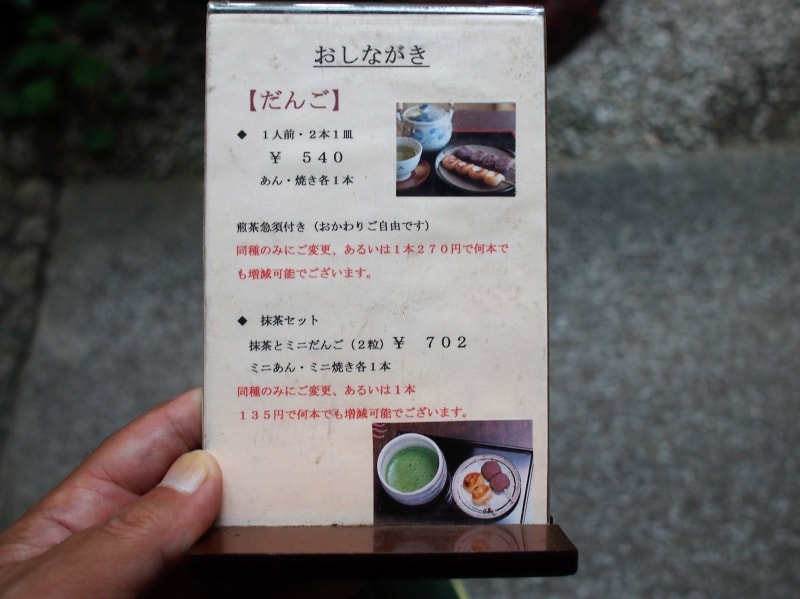 おしながき
【だんご】
◆ 1人前・2本1皿
¥ 540
あん・焼き各1本
煎茶急須付き（おかわりご自由です）
同種のみにご変更、あるいは1本270円で何本で
も増減可能でございます。
◆ 抹茶セット
抹茶とミニだんご（2粒）¥ 702
ミニあん・ミニ焼き各1本
同種のみにご変更、あるいは1本
135円で何本でも増減可能でございます。